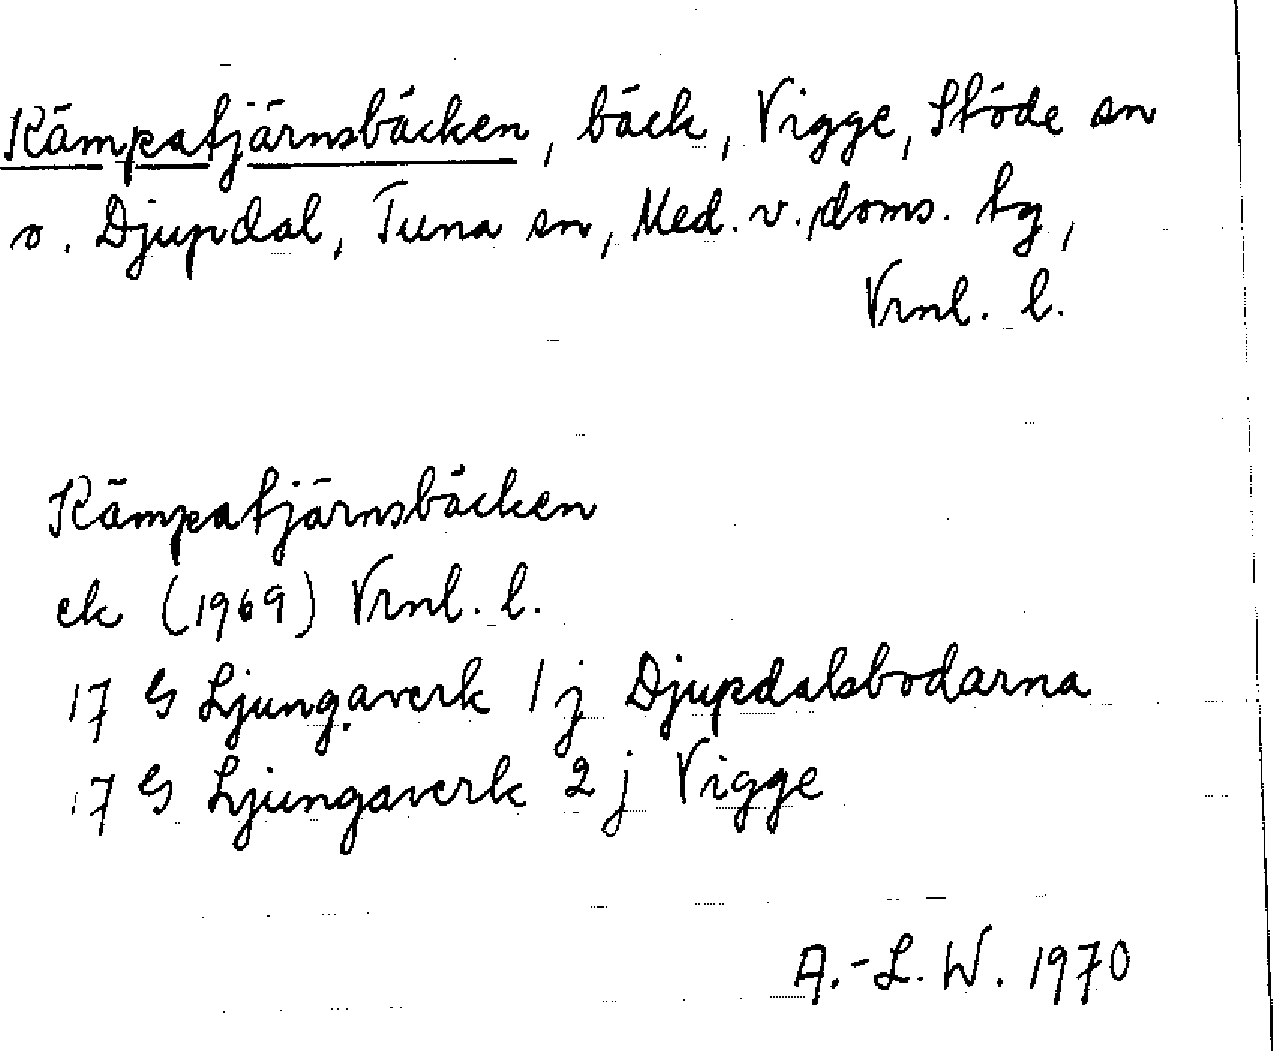 Kämpatjärnsbäcken, bäck, Vigge, Stöde sn
o. Djupdal, Tuna sn, Med. v. doms. tg,
Vrnl. l.
Kämpatjärnsbäcken
ek (1969) Vrnl. l.
17 G Ljungaverk 1 j Djupdalsbodarna
17 G Ljungaverk 2 j Vigge
A.-L. W. 1970